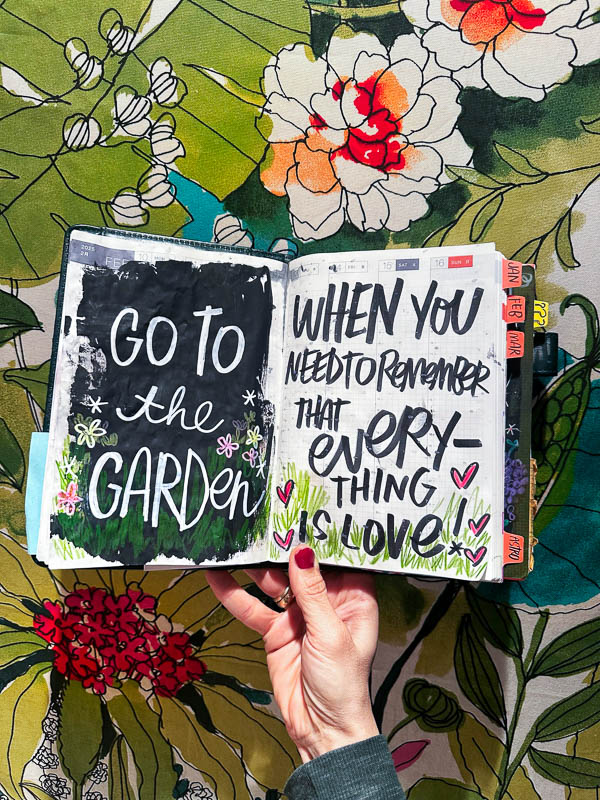 2025
FEB
GO TO
the
GARDEN
15 SAT
16 SUN
WHEN YOU
NEED TO REMEMBER
THAT
EVERY-
THING
IS LOVE!
JAN
FEB
MAR
ASTRO